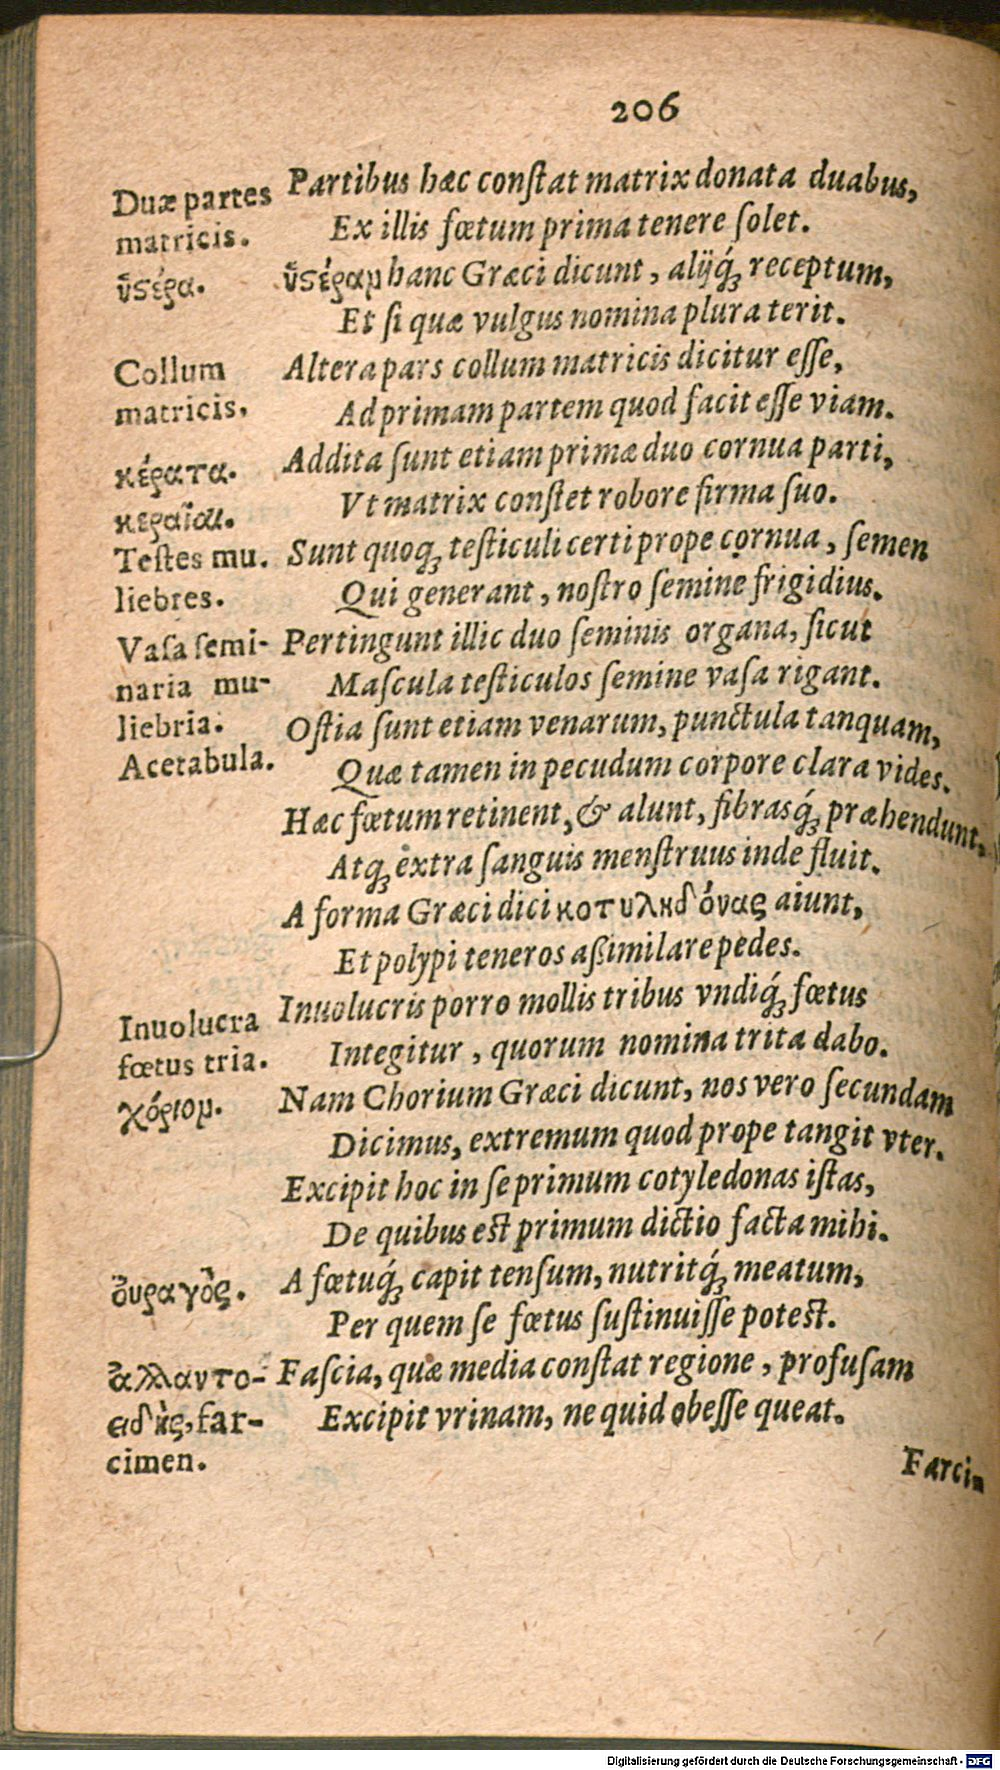 206
Duæ partes
matricis.
ὑϛέρα.
Collum
matricis.
κέρατα.
κεραῖαι.
Testes mu.
liebres.
Vasa semi-
naria mu-
liebria.
Acetabula.
Inuolucra
fœtus tria.
χόριον.
ὀυραγὸς.
ἀλλαντο-
ειδὴς, far-
cimen.
Partibus hæc conſtat matrix donata duabus,
Ex illis fœtum prima tenere ſolet.
ὑϛέραν hanc Græci dicunt, alijq́ꝫ receptum,
Et ſi quæ vulgus nomina plura terit.
Altera pars collum matricis dicitur eſſe,
Ad primam partem quod facit eſſe viam.
Addita ſunt etiam primæ duo cornua parti,
Vt matrix conſtet robore firma ſuo.
Sunt quoqꝫ teſticuli certi prope cornua, ſemen
Qui generant, noſtro ſemine frigidius.
Pertingunt illic duo ſeminis organa, ſicut
Maſcula teſticulos ſemine vaſa rigant.
Oſtia ſunt etiam venarum, punctula tanquam,
Quæ tamen in pecudum corpore clara vides.
Hæc fœtum retinent, & alunt, fibrasq́ꝫ præhendunt,
Atqꝫ extra ſanguis menſtruus inde fluit.
A forma Græci dici κοτυληδόνας aiunt,
Et polypi teneros aßimilare pedes.
Inuolucris porro mollis tribus vndiq́ꝫ fœtus
Integitur, quorum nomina trita dabo.
Nam Chorium Græci dicunt, nos vero ſecundam
Dicimus, extremum quod prope tangit vter.
Excipit hoc in ſe primum cotyledonas iſtas,
De quibus est primum dictio facta mihi.
A fœtuq́ꝫ capit tenſum, nutritq́ꝫ meatum,
Per quem ſe fœtus ſuſtinuiſſe potest.
Faſcia, quæ media conſtat regione, profuſam
Excipit vrinam, ne quid obeſſe queat.
Farci-
Digitalisierung gefördert durch die Deutsche Forschungsgemeinschaft - DFG